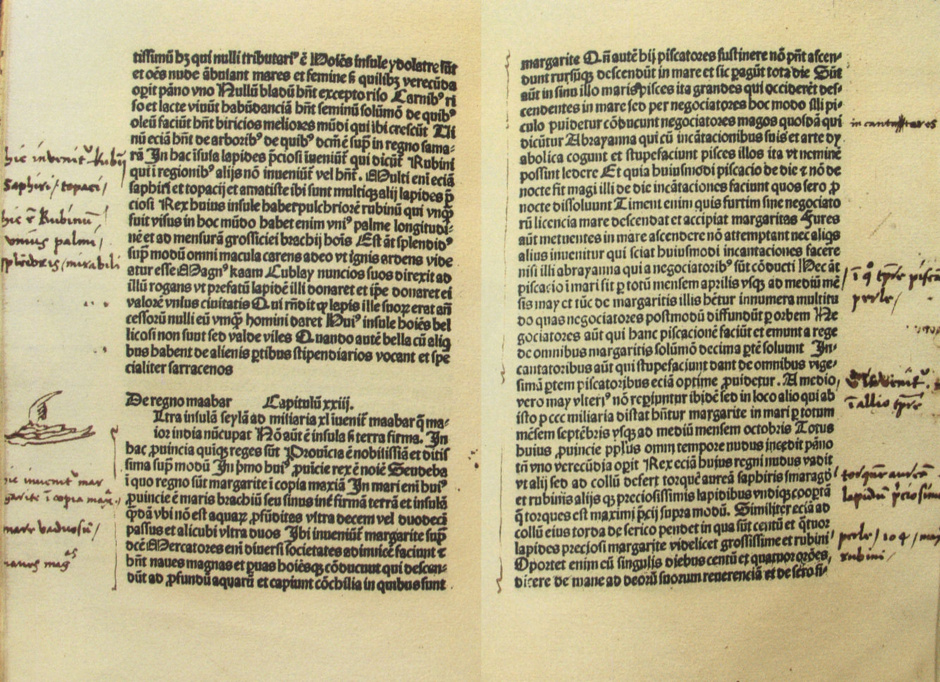 tissimū hz qui nulli tributari⁹ ē Hoīes insule ydolatre sūt
et oēs nude ābulant mares et femine s̄ quilibz verecūda
opit pāno vno Nullū bladū hn̄t excepto riso Carnib⁹ ri
so et lacte viuūt habūdanciā hn̄t seminū solūmō de quib⁹
oleū faciūt hn̄t biricios meliores mūdi qui ibi crescūt Ui
nū eciā hn̄t de arborib⁹ de quib⁹ dcm̄ ē sup̄ in regno sama-
rā In hac īsula lapides p̄ciosi īueniūt̄ qui dicūt̄ Rubini
qui ī regionib⁹ alijs nō inueniūt̄ vel hn̄t̄. Multi eni eciā
saphiri et topacij et amatiste ibi sunt multiqz alij lapides p̄
ciosi Rex huius insule habet pulchriorē rubinū qui vnqz
fuit visus in hoc mūdo habet enim vni⁹ palme longitudi-
nē et ad mensurā grossiciei brachij hoīs Est āt splendid⁹
sup̄ modū omni macula carens adeo vt ignis ardens vide
atur esse Magn⁹ kaam Cublay nuncios suos direxit ad
illū rogans vt prefatū lapidē illi donaret et ip̄e donaret ei
valorē vnius ciuitatis Qui rn̄dit qz lapis ille suorz erat an̄
cessorū nulli eū vnqz homini daret Hui⁹ insule hoīes bel
licosi non sunt sed valde viles Quando autē bella cū aliqz
bus habent de alienis p̄tibus stipendiarios vocant et spe
cialiter sarracenos
De regno maabar Capitulū xxiij.
Ultra insulā seylā ad miliaria xl īuenit̄ maabar q̄ ma-
ior india nūcupat̄ Nō aūt ē insula s̄ terra firma. In
hac p̄uincia quiqz reges sūt Prouicia ē nobilissīa et ditis
sima sup̄ modū In p̄mo hui⁹ p̄uicie rex ē noīe Sendeba
i quo regno sūt margarite ī copia maxiā In mari eni hui⁹
p̄uincie ē maris brachiū seu sinus int̄ firmā terrā et insulā
qz̄dā vbi nō est aquaz p̄fūditas vltra decem vel duodecī
passus et alicubi vltra duos Ibi īueniūt̄ margarite sup̄
dcē Mercatores eni diuersi societates adinuicē faciunt et
hn̄t naues magnas et p̄uas hoīesqz cōducunt qui descen-
dūt ad p̄fundū aquarū et capiunt cōchilia in quibus sunt
hic inuenit̄ Rubi
saphiri / topaci /
hic ē Rubinū
vnius palmi /
mirabili
hic inuenit̄ mar
garite ī copia max̄
mare vadosū /
margarite Qn̄ autē hij piscatores sustinere nō pn̄t ascen-
dunt rursūqz descendūt in mare et sic p̄agūt tota die Sūt
aūt in sinu illo maris pisces ita grandes qui occiderēt des-
cendentes in mare sed per negociatores hoc modo illi pi-
culo p̄uidetur cōducunt negociatores magos quosdā qui
dicūtur Abrayanna qui cū incātacionibus suis et arte dy
abolica cogunt et stupefaciunt pisces illos ita vt neminē
possint ledere Et quia huiusmodi piscacio de die et nō de
nocte fit magi illi de die incātaciones faciunt quas sero p̄
nocte dissoluunt Timent enim quis furtim sine negociato
rū licencia mare descendat et accipiat margaritas Fures
aūt metuentes in mare ascendere nō attemptant nec aliqs
alius inuenitur qui sciat huiusmodi incantaciones facere
nisi illi abrayanna qui a negociatorib⁹ sūt cōducti Hec āt
piscacio ī mari fit p̄ totū mensem aprilis vsqz ad mediū mē
sis may et tūc de margaritis illis hētur innumera multitu
do quas negociatores postmodū diffundūt p̄ orbem Ne
gociatores aūt qui hanc piscacionē faciūt et emunt a rege
de omnibus margaritis solūmō decima p̄tē soluunt In-
cantatoribus aūt qui stupefaciunt dant de omnibus vige-
simā p̄tem piscatoribus eciā optime p̄uidetur. A medio
vero may vlteri⁹ nō reꝑiuntur ibidē sed in loco alio qui ab
isto p ccc miliaria distat hn̄tur margarite in mari p̄ totum
mēsem septēbris vsqz ad mediū mensem octobris Totus
huius p̄uincie pp̄lus omni tempore nudus incedit pāno
tn̄ vno verecūdia opit Rex eciā huius regni nudus vadit
vt alij sed ad collū defert torquē aureā saphiris smaragd̄
et rubinis alijsqz preciosissimis lapidibus vndiqz coopta
q̄ torques est maximi p̄cij supra modū. Similiter eciā ad
collū eius torda de serico pendet in qua sūt centū et q̄tuor
lapides preciosi margarite videlicet grossissime et rubini
Oportet enim cū singulis diebus centū et quatuor or̄ones
dicere de mane ad deorū suorum reuerenciā et de sero si-
incantatores
perle /
Et inuenit̄
ī alio tp̄re
torquē aureā
lapidū p̄ciosiū
perle / 104 /
rubini /